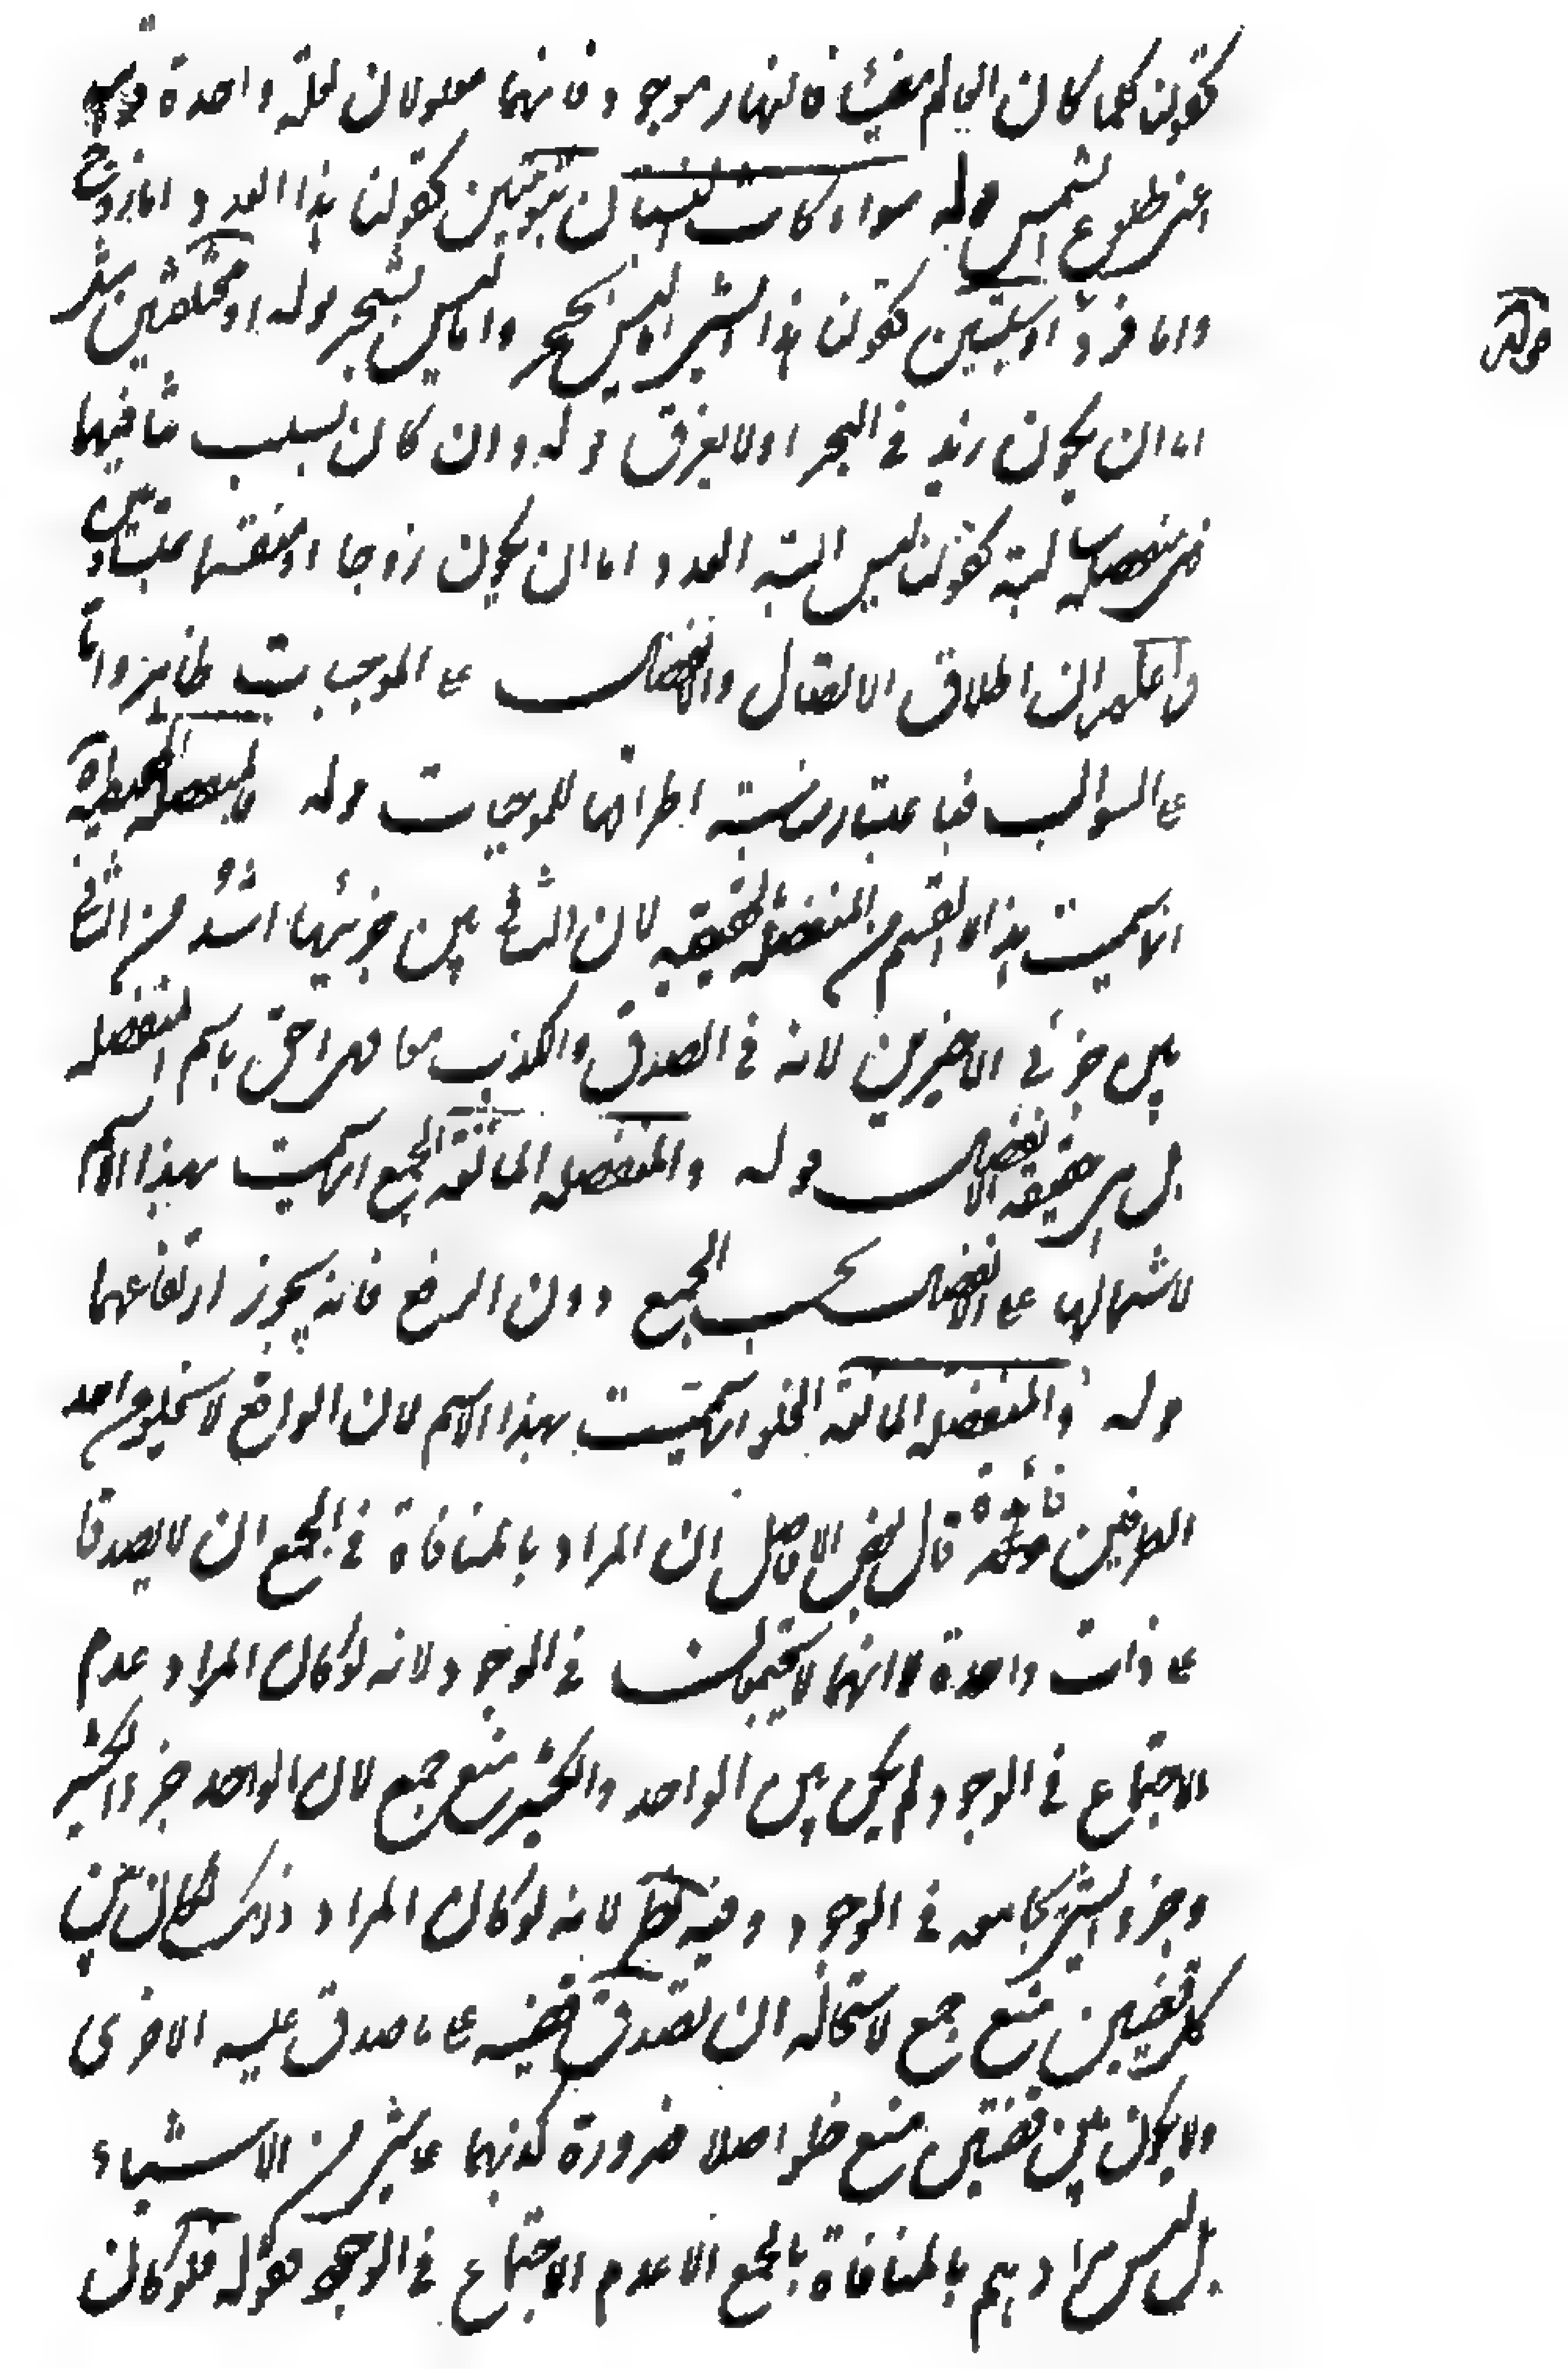 كقولنا كلما كان العالم مضيئا فالنهار موجود فانهما معلولان لعلة واحدة وهي
اعنى طلوع الشمس قوله سواء كانت النسبتان ثبوتيتين كقولنا هذا العدد اما زوج
واما فرد او سلبيتين كقولنا هذا الشئ اما ليس بحجر واما ليس بشجر قوله او مختلفتين نحو
اما ان يكون زيد فى البحر او لا يغرق قوله وان كان بسلب تنافيهما
فهى منفصلة سالبة كقولنا ليس البتة العدد اما ان يكون زوجا او منقسما بمتساويين
واعلم ان اطلاق الاتصال والانفصال على الموجبات ظاهر واما
على السوالب فباعتبار مناسبة اطرافها للموجبات قوله فالمنفصلة الحقيقية
انما سميت هذا القسم من المنفصلة الحقيقية لان التنافى بين جزئيها اشد من التنافى
بين جزئى الاخيرين لانه فى الصدق والكذب معا فهى احق باسم المنفصلة
بل هى حقيقة الانفصال قوله والمنفصلة المانعة الجمع انما سميت بهذا الاسم
لاشتمالها على الانفصال بحسب الجمع دون الرفع فانه يجوز ارتفاعهما
قوله والمنفصلة المانعة الخلو انما سميت بهذا الاسم لان الواقع لا يخلو من احد
الطرفين فائدة قال بعض الافاضل ان المراد بالمنافاة فى الجمع ان لا يصدقا
على ذات واحدة لا انهما لا يجتمعان فى الوجود لانه لو كان المراد عدم
الاجتماع فى الوجود لم يكن بين الواحد والكثير منع جمع لان الواحد جزء الكثير
وجزء الشئ يجامعه فى الوجود وفيه نظر لانه لو كان المراد ذلك لكان بين
كل قضيتين منع جمع لاستحالة ان تصدق قضية على ما صدق عليه الاخرى
ولا يكون بين قضيتين منع خلو اصلا ضرورة كذبهما على شئ من الاشياء
بل ليس مرادهم بالمنافاة بالجمع الا عدم الاجتماع فى الوجود قوله فلو كان
قوله